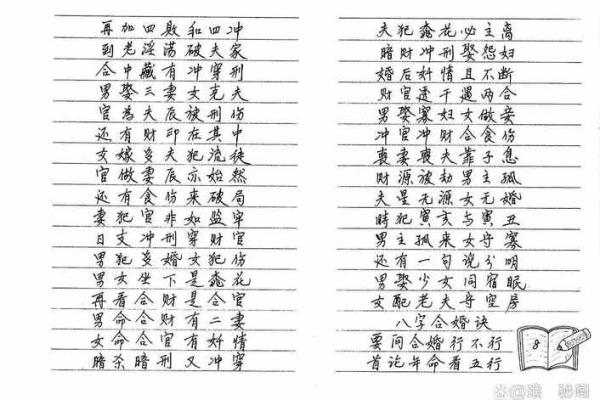 再加四败和四冲
到老淫荡破夫家
合中藏有冲穿刑
男娶三妻女克夫
官为夫辰被刑伤
还有财印在其中
女嫁多夫犯流徒
官做妻辰亦始然
还有食伤来破局
妻犯官非如监牢
日支冲刑穿财官
男犯多婚女犯伤
男女坐下是桃花
再看合财是合官
男命合财有二妻
女命合官有奸情
暗杀暗刑又冲穿
夫犯桃花必主离
暗财冲刑娶怨妇
婚后奸情且不断
财官透干遇两合
男娶寡妇女做妾
冲官冲财合食伤
丧妻丧夫靠子息
财源被劫男主孤
夫星无源女无婚
时犯寅亥与寅丑
男主孤来女守寡
还有一句说分明
男娶少女同宿眠
女配老夫守空房
八字合婚诀
要问合婚行不行
首论年命看五行
8